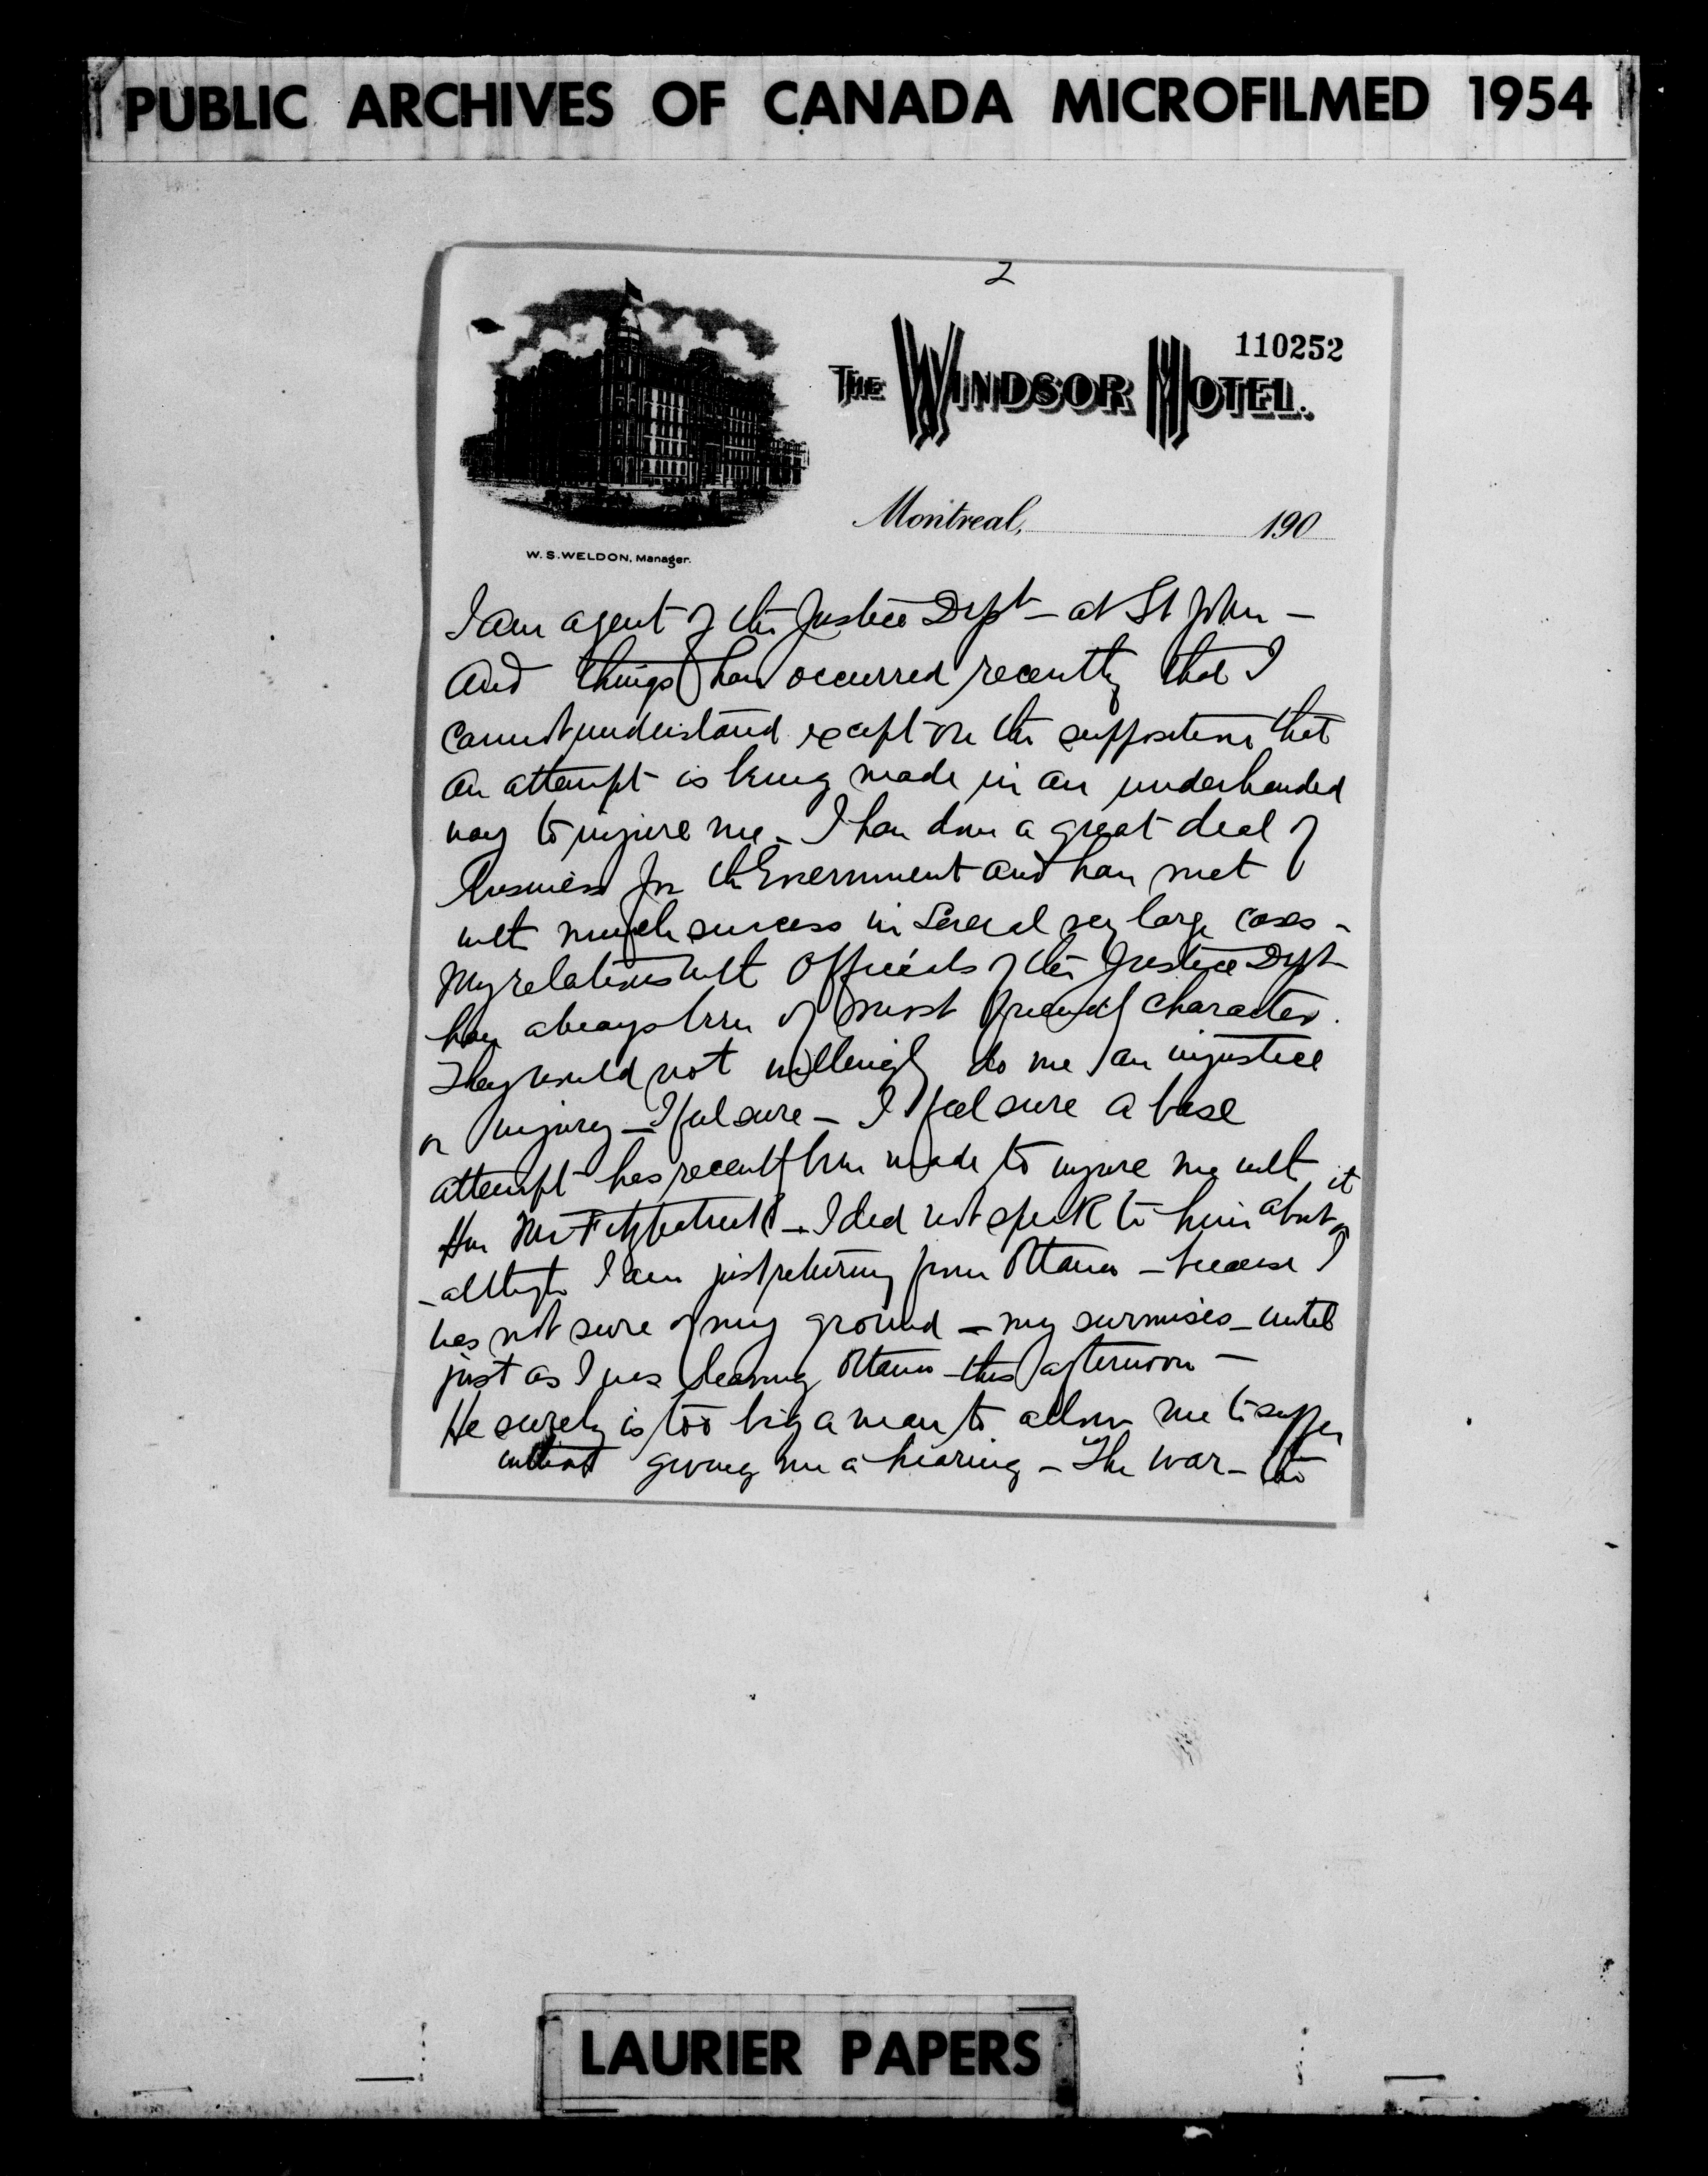 PUBLIC ARCHIVES OF CANADA MICROFILMED 1954
2
110252
THE WINDSOR HOTEL.
Montreal, 190
W. S. WELDON, Manager.
I am agent of the Justice Dept - at St John -
and things have occurred recently that I
cannot understand except on the supposition that
an attempt is being made in an underhanded
way to injure me - I have done a great deal of
business for the Government and have met
with much success in several very large cases -
My relations with officials of the Justice Dept
have always been of most friendly character.
They would not willingly do me an injustice
or injury - I feel sure - I feel sure a base
attempt has recently been made to injure me with
Hon Mr Fitzpatrick - I did not speak to him about it
- although I am just returning from Ottawa - because I
was not sure of my ground - my surmises - until
just as I was leaving Ottawa this afternoon -
He surely is too big a man to allow me to suffer
without giving me a hearing - The war - the
LAURIER PAPERS